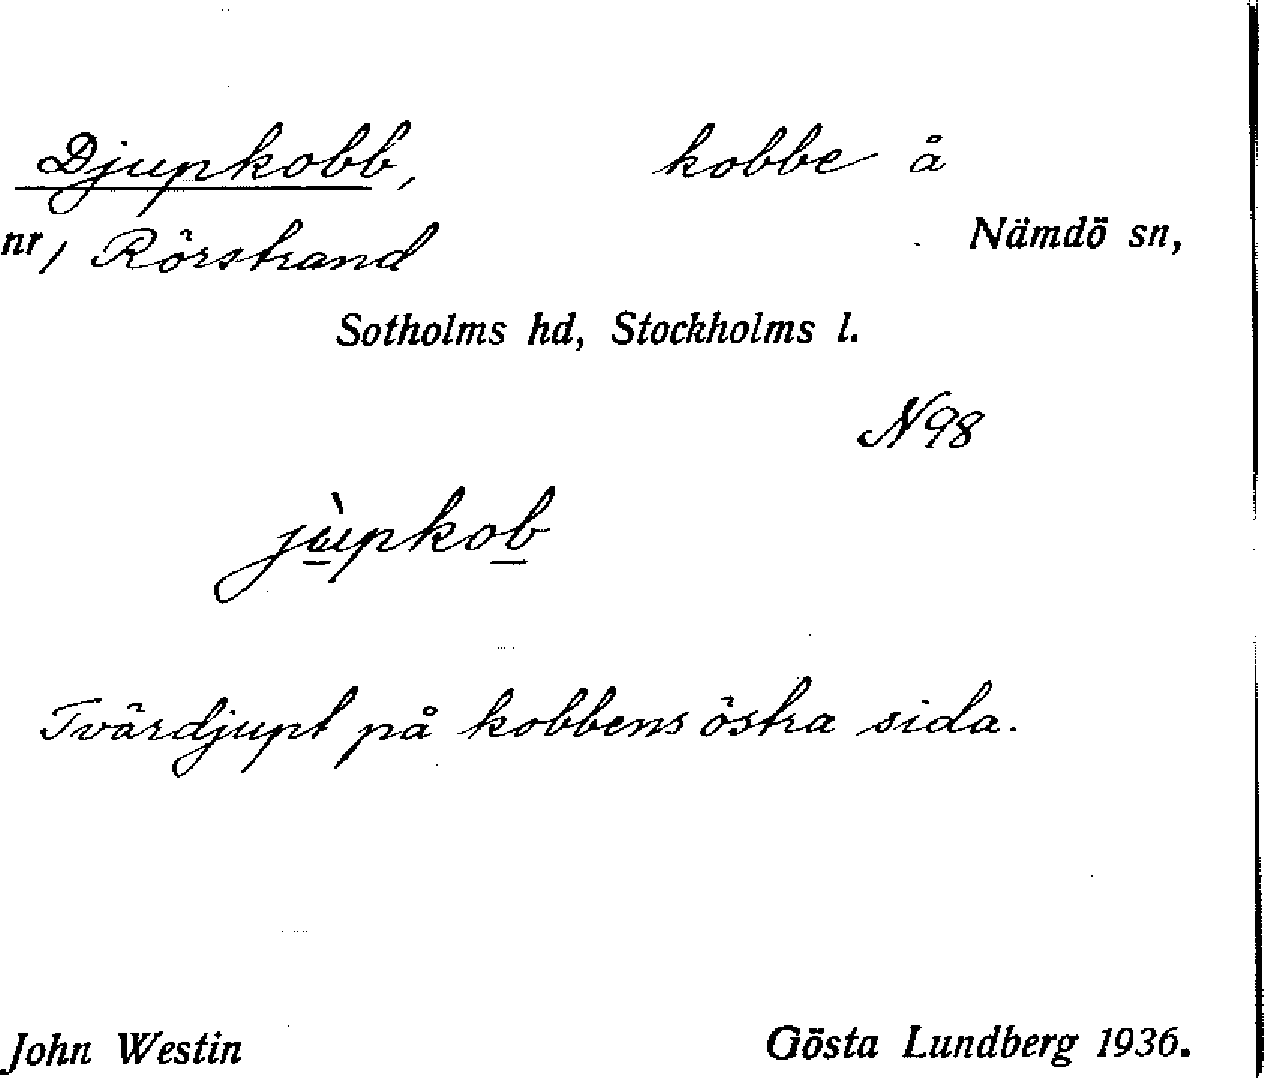 Djupkobb, kobbe å
nr, Rörstrand Nämdö sn,
Sotholms hd, Stockholms l.
N98
jùpkob
Tvärdjupt på kobbens östra sida.
John Westin Gösta Lundberg 1936.